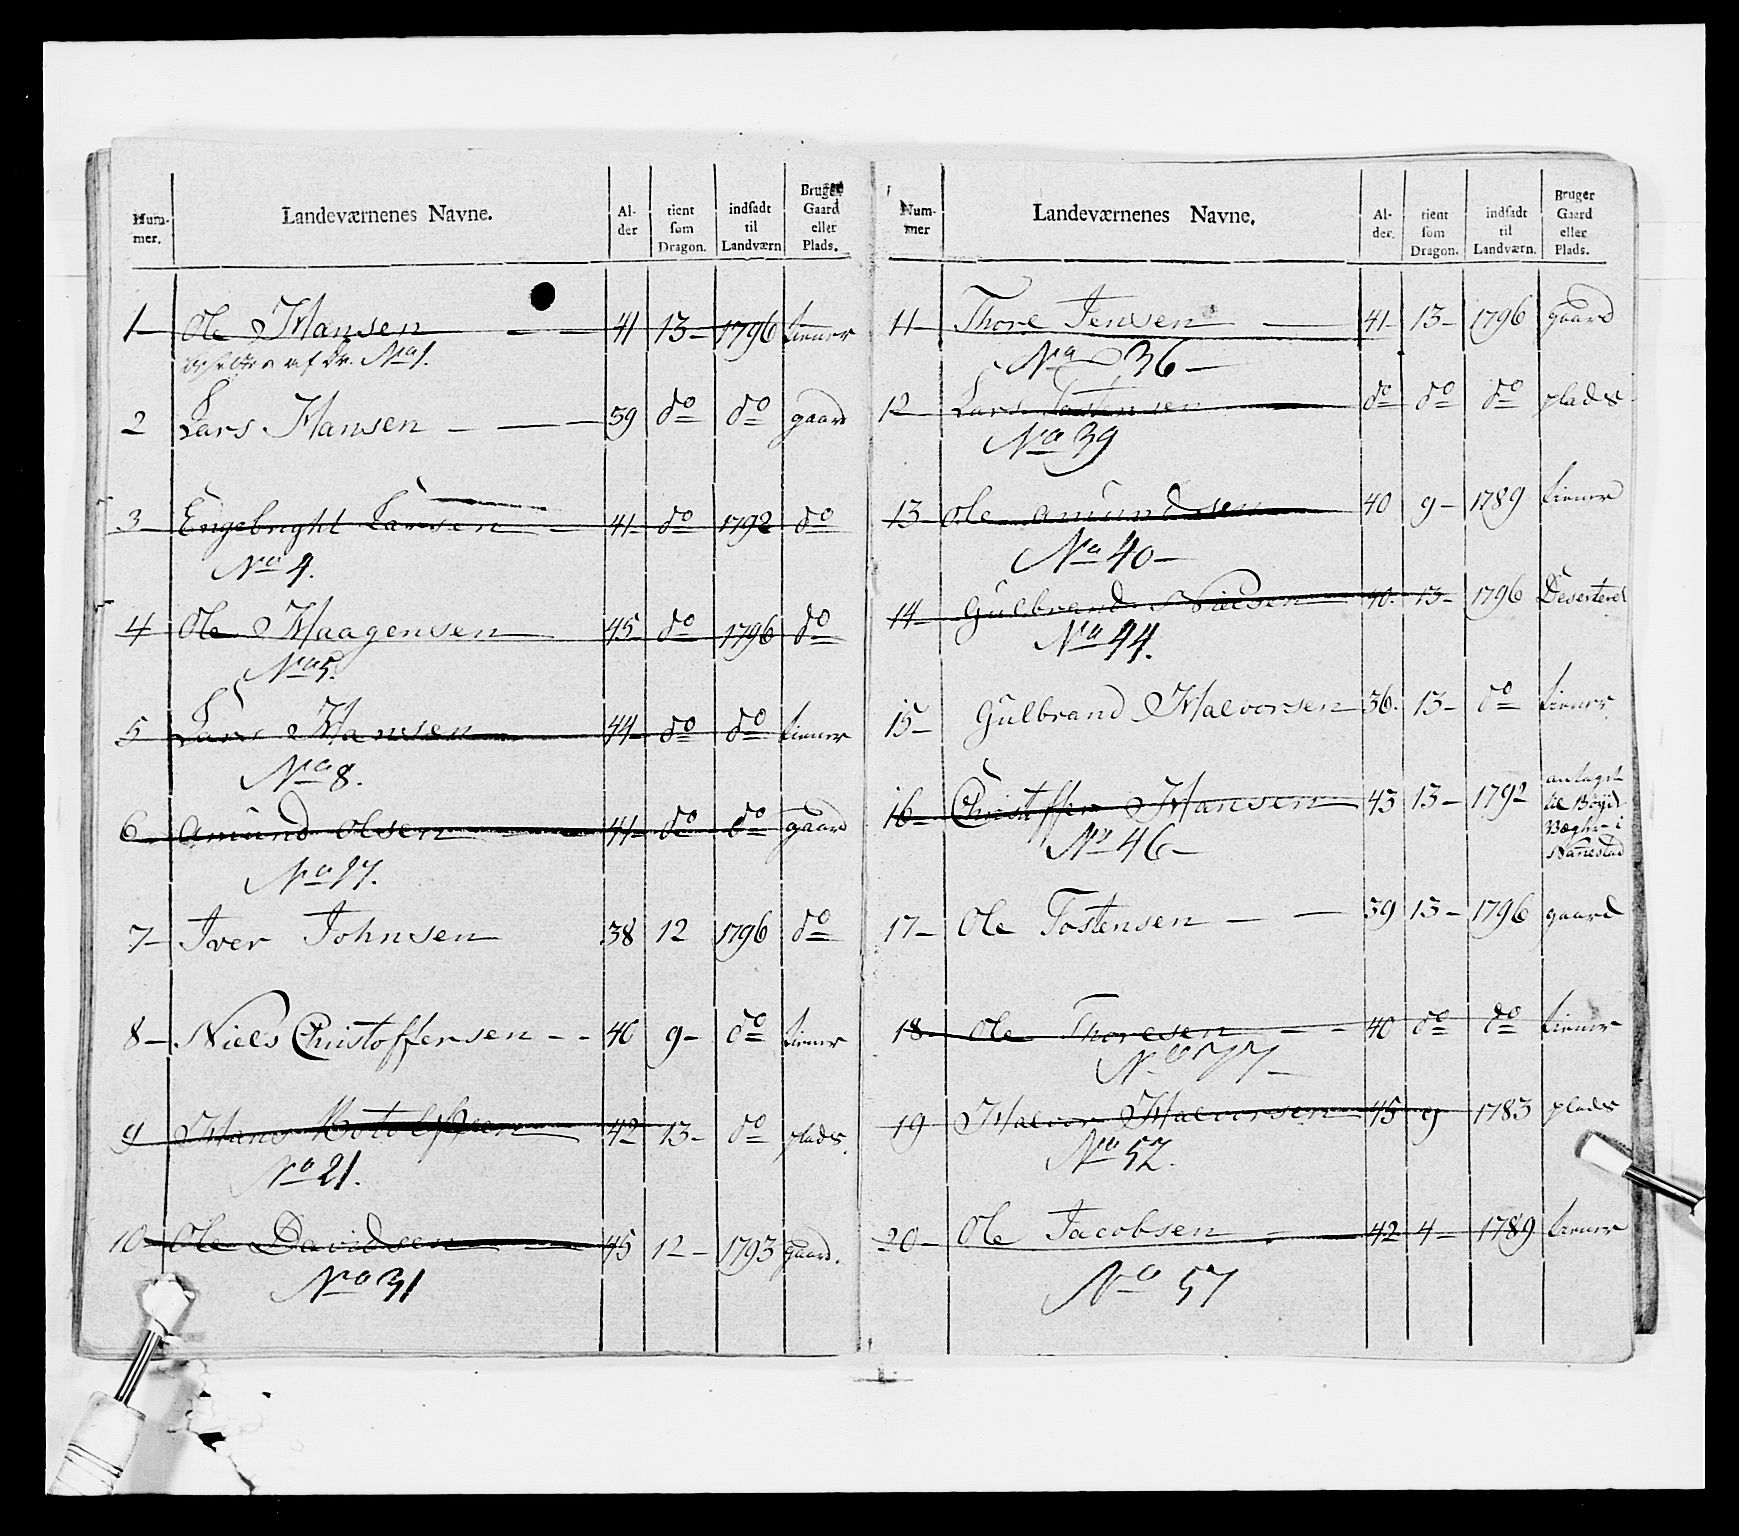 Num-
mer.
Landeværnenes Navne.
Al-
der
tient
som
Dragon.
indsadt
til
Landværn
Bruger
Gaard
eller
Plads.
1- Ole Hansen - - 41 13- 1796 tiener
af Dr. No 1.
2 Lars Hansen - - - 39 do do gaard
3- Engebrigt Larsen - 41- do 1792 do
No 4.
4 Ole Haagensen 45- do 1796 do
No 5.
5 Lars Hansen 44- do do tiener
No 8.
6- Amund Olsen 44- do do gaard
No 17.
7- Iver Johnsen 38 12 1796 do
8- Niels Christoffersen - - 40 9- do tiener
9 Hans Botolfsen 42 13- do plads.
No 21.
10- Ole Davidsen 45 12- 1793 gaard.
No 31
Num-
mer
Landeværnenes Navne.
Al-
der.
tient
som
Dragon.
indsadt
til
Landværn.
Bruger
Gaard
eller
Plads.
11- Thore Jensen - 41- 13- 1796 gaard
No 36-
12- Lars Tostensen do do do plads
No 39
13- Ole Amundsen 40 9- 1789 tiener
No 40-
14- Gulbrand Nielsen 40- 13- 1796 Deserteret
No 44.
15- Gulbrand Halvorsen 36. 13- do tiener
16- Christoffer Hansen 43 13- 1792 antaget
til Bøyde
i
Nanestad
No 46-
17- Ole Tostensen - - 39 13- 1796 gaard
18- Ole Thoresen - - 40 do do tiener
No 77-
19 Halvor Halvorsen 45 9 1783 plads
No 52.
20- Ole Jacobsen - 42 4- 1789 tiener
No 57